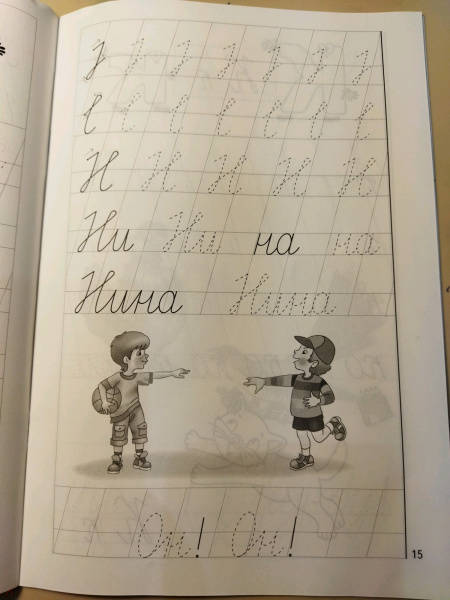 Н Н Н Н Н
Ни Ни на на
Нина Нина
Он! Он!
15